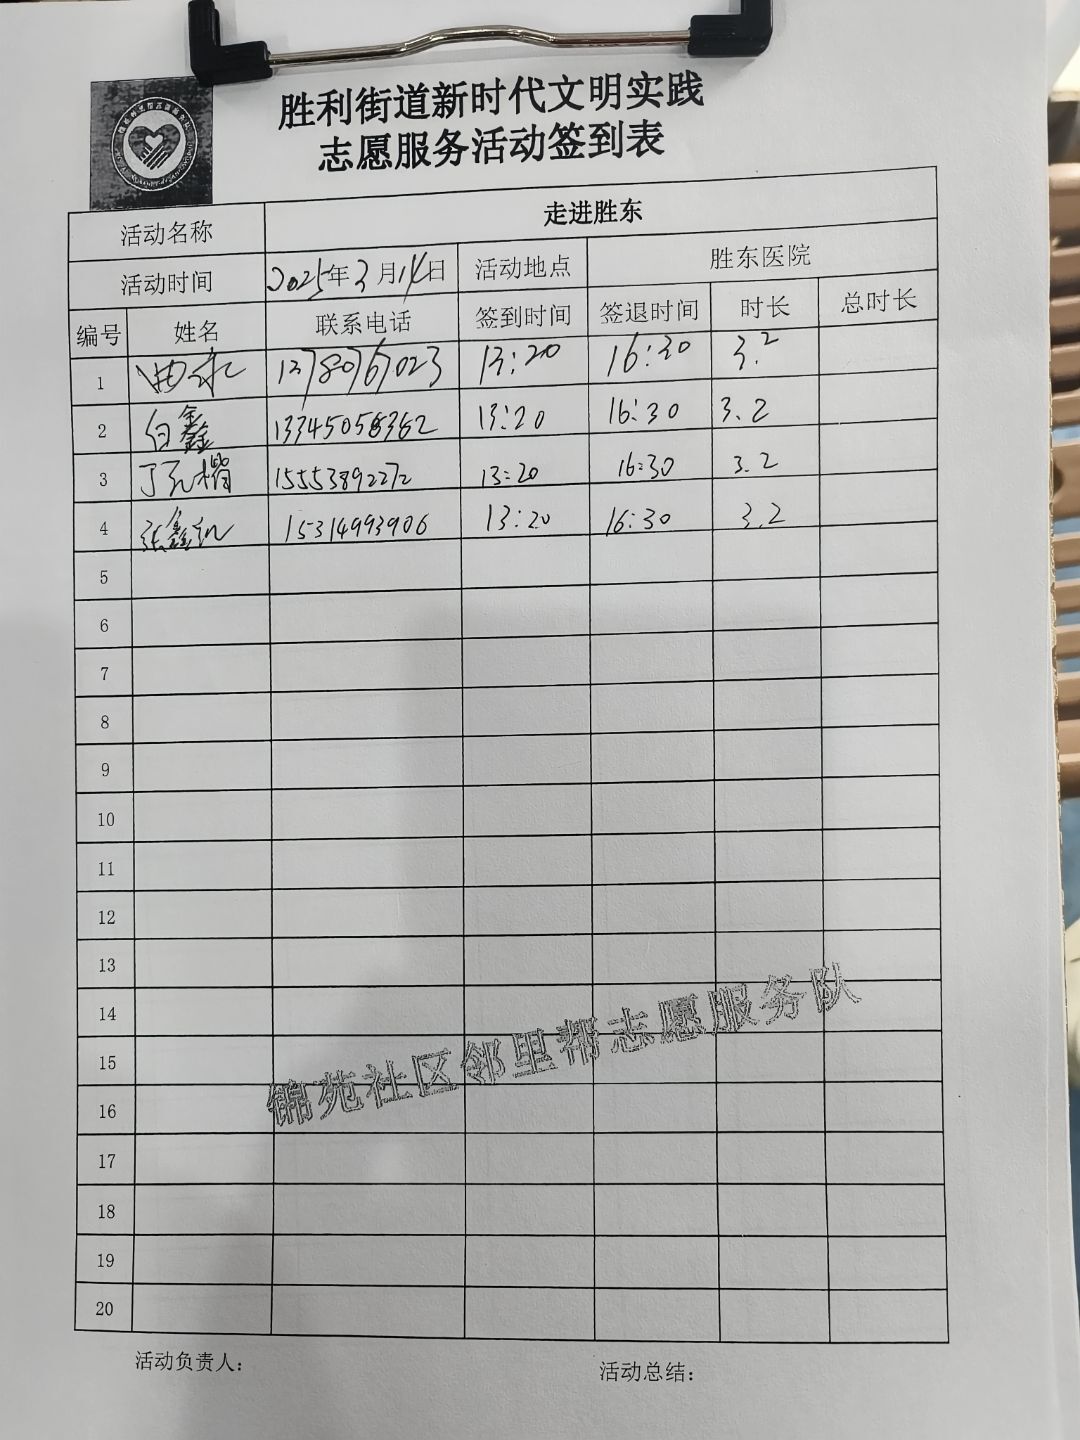 胜利街道新时代文明实践
志愿服务活动签到表
活动名称 走进胜东
活动时间 2025年3月14日 活动地点 胜东医院
编号 姓名 联系电话 签到时间 签退时间 时长 总时长
1 13:20 16:30 3.2
2 白鑫 13345058362 13:20 16:30 3.2
3 15553892272 13:20 16:30 3.2
4 15314993906 13:20 16:30 3.2
5
6
7
8
9
10
11
12
13
14
15
16
17
18
19
20
锦苑社区邻里帮志愿服务队
活动负责人： 活动总结：